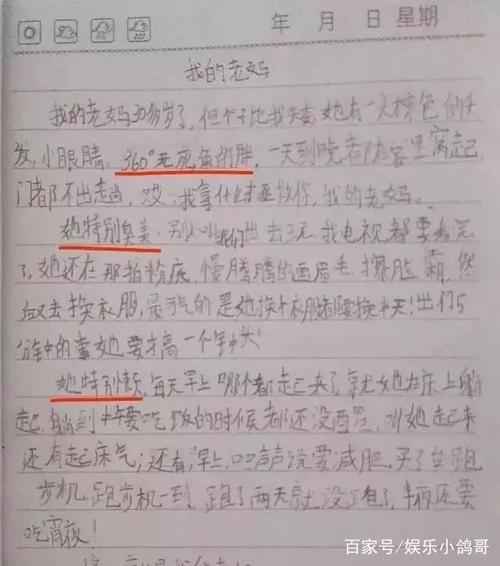 年 月 日 星期
我的老妈
我的老妈30多岁了,但个子比我矮,她有一头棕色的头
发,小眼睛,360°无死角的胖,一天到晚都在家里窝起,
门都不出走淌,哎,我拿什么拯救你,我的老妈。
她特别臭美,别人叫我们出去玩,我电视都要看完
了,她还在那拍粉底,慢腾腾的画眉毛,擦脸霜,然
后又去换衣服,最气的是她换个衣服都要换半天!出门5
分钟的事她要才高一个钟头!
她特别懒,每天早上哪个都起来了,就她在床上躺
起,躺到中午要吃饭的时候都还没醒,叫她起来
还有起床气;还有,早上口口声声说要减肥,买了台跑
步机,跑步机一到,跑了两天就没跑了,半夜还要
吃宵夜!
百家号/娱乐小鸽哥